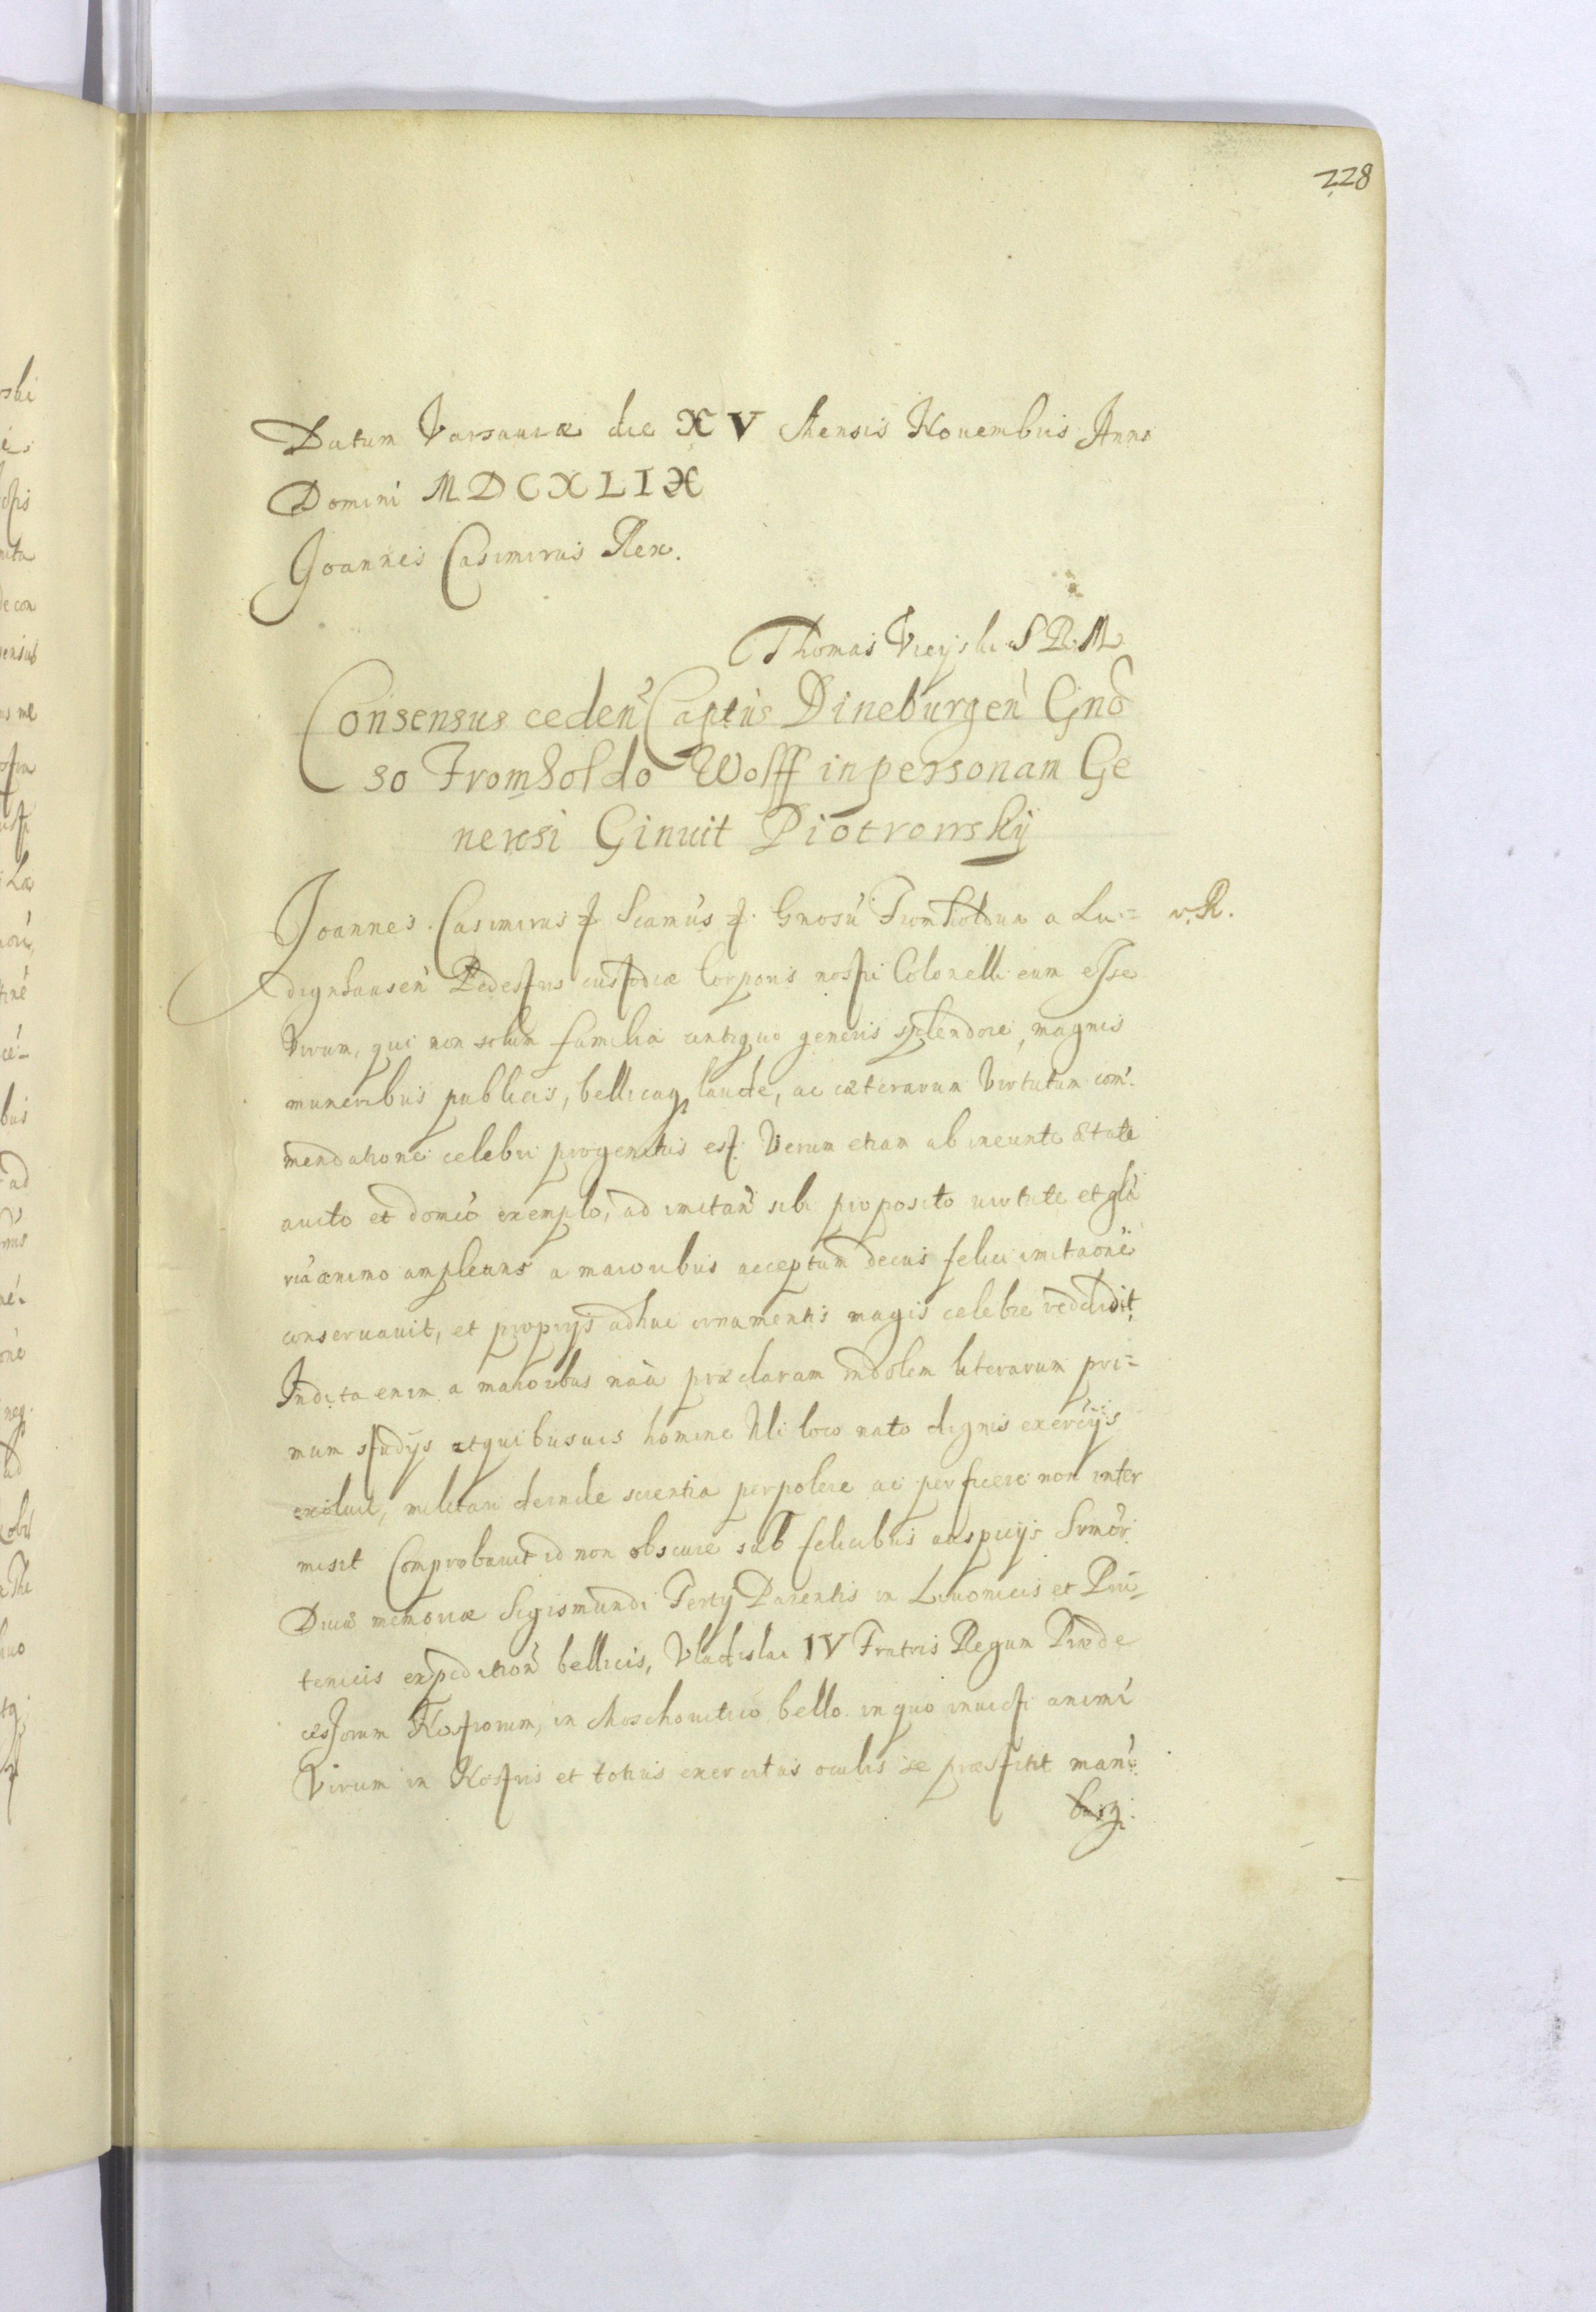 228
Datum Varsauiæ die XV Mensis Nouembris Anno
Domini MDCXLIX
Joannes Casimirus Rex.
Thomas Vieyski S R. M
Consensus ceden Captûs Dineburgen Gnô
so Fromholdo Wolff in personam Ge
nerosi Ginuit Piotrowskij
Joannes Casimirus Sciamûs Gnosû Fromholdum a Lu= v. R.
dignhausen Pedestris custodiæ Corporis nostri Colonelli eum esse
Virum, qui non solum familia antiquo generis splendore, magnis
muneribus publicis, bellicaq laude, ac cæterarum Virtutum com
mendatione celebri progenitus est. Verum etiam ab ineunte ætate
auito et domco exemplo, ad imitan sibi proposito uirtute et glô
riâ animo amplexans a maioribus acceptum decus felici imitaone
conseruauit, et proprijs adhuc ornamentis magis celebre reddidit,
Indita enim a maioribus naũ præclaram indolem literarum pri=
mum studijs et quibusuis homine Nli loco nato dignis exercijs
excoluit, militari deinde scientia perpolire ac perficere non inter
misit Comprobauit id non obscure sub felicibus auspicijs Srmor
Diuæ memoriæ Sigismundi Tertij Parentis in Liuonicis et Pru=
tenicis expedition bellicis, Vladislai IV Fratris Regum Præde
cessorum Nostrorum, in Moschouitico bello in quo inuicti animi
Virum in Nostris et totius exercitus oculis se præstitit man
busq